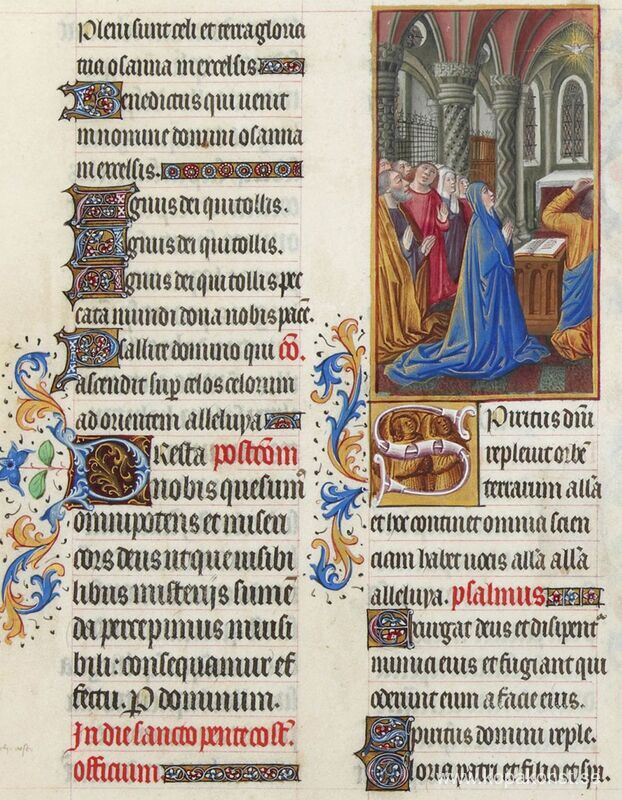 Pleni sunt celi et terra gloria
tua osanna in excelsis.
Benedictus qui venit
in nomine domini osanna
in excelsis.
Agnus dei qui tollis.
Agnus dei qui tollis.
Agnus dei qui tollis pec
cata mundi dona nobis pacē.
Psallite domino qui cō.
ascendit sup celos celorum
ad orientem alleluya
Presta postcōm
nobis quesumꝰ
omnipotens et miseri
cors deus ut que visibi
libus misterijs sumē
da percepimus invisi
bili: consequamur ef
fectu. P dominum.
In die sancto pentecost.
officium
Spiritus dñi
replevit orbē
terrarum alla
et hoc continet omnia scien
ciam habet vocis alla alla
alleluya. psalmus
Exurgat deus et disipent
inimici eius et fugiant qui
oderunt eum a facie eius.
Spiritus domini reple.
Gloria patri et filio et spi.